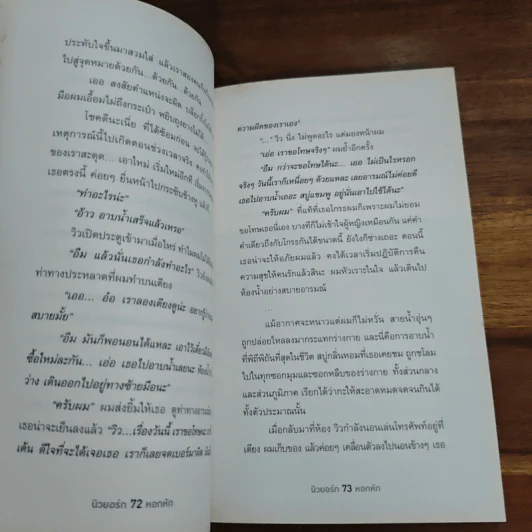 ประทับใจขึ้นมาสวมใส่ แล้วเราสองคนก็
ไปสู่จุดหมายด้วยกัน...ด้วยกัน.. ด้วยกัน
เออ สงสัยตำแหน่งจะผิด เลือก
มือผมเอื้อมไม่ถึงกระเป๋า หยิบถุงยางไม่ได้
โชคดีนะเนี่ย ที่ได้ซ้อมก่อน
เหตุการณ์นี้ไปเกิดตอนช่วงเวลาจริง
ของเราสะดุด... เอาใหม่ เริ่มใหม่อีกที
เธอตรงนี้ ค่อยๆ ยื่นหน้าไปกระซิบข้างหู
“ทำอะไรน่ะ”
“อ้าว อาบน้ำเสร็จแล้วเหรอ”
วิวเปิดประตูเข้ามาเมื่อไหร่ ทำไม
“อืม แล้วนั่นเธอกำลังทำอะไร”
ท่าทางประหลาดที่ผมทำบนเตียง
“เออ... อ๋อ เราลองเตียงดูน่ะ อยากรู้ว่า
สบายมั้ย”
“อืม มันก็พอนอนได้แหละ เอาไว้
ซื้อใหม่ละกัน... เอ่อ เธอไปอาบน้ำเลยนะ
ว่าง เดินออกไปอยู่ทางซ้ายมือนะ”
“ครับผม” ผมส่งยิ้มให้เธอ ดูท่าทาง
เธอน่าจะเย็นลงแล้ว “วิว...เรื่องวันนี้ เราขอโทษนะ
เต้น ดีใจที่จะได้เจอเธอ เราก็เลยจดเบอร์มาผิด
นิวยอร์ก 72 หอกหัก
ความผิดของเราเอง”
“...” วิว นิ่ง ไม่พูดอะไร แต่มองหน้าผม
“เอ่อ เราขอโทษจริงๆ” ผมย้ำอีกครั้ง
“อืม กว่าจะขอโทษได้นะ... เออ ไม่เป็นไรหรอก
จริงๆ วันนี้เราก็เหนื่อยๆ ด้วยแหละ เลยอารมณ์ไม่ค่อยดี
เธอไปอาบน้ำเถอะ สบู่แชมพู อยู่นั่นเอาไปใช้ได้นะ”
“ครับผม” ที่แท้ที่เธอโกรธผมก็เพราะผมไม่ยอม
ขอโทษเธอนี่เอง บางทีก็ไม่เข้าใจผู้หญิงเหมือนกัน แค่คำ
คำเดียวถึงกับโกรธกันได้ขนาดนี้ ยังไงก็ช่างเถอะ ตอนนี้
เธอน่าจะให้อภัยผมแล้ว คงได้เวลาเริ่มปฏิบัติการคืน
ความสุขให้คนรักแล้วสินะ ผมหัวเราะในใจ แล้วเดินไป
ห้องน้ำอย่างสบายอารมณ์
...
แม้อากาศจะหนาวแต่ผมก็ไม่หวั่น สายน้ำอุ่นๆ
ถูกปล่อยไหลลงมากระแทกร่างกาย และนี่คือการอาบน้ำ
ที่พิถีพิถันที่สุดในชีวิต สบู่กลิ่นหอมที่เธอเคยชม ถูกชโลม
ไปในทุกซอกมุมและซอกหลืบของร่างกาย ทั้งส่วนกลาง
และส่วนภูมิภาค เรียกได้ว่ากะให้สะอาดหมดจดจนกินได้
ทั้งตัวประมาณนั้น
เมื่อกลับมาที่ห้อง วิวกำลังนอนเล่นโทรศัพท์อยู่ที่
เตียง ผมเก็บของ แล้วค่อยๆ เคลื่อนตัวลงไปนอนข้างๆ เธอ
นิวยอร์ก 73 หอกหัก